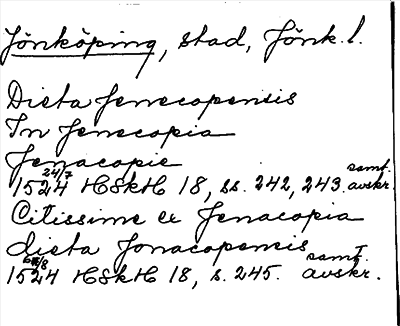 Jönköping, stad, Jönk. l.
Dieta Jenecopensis
In Jenecopia
Jenacopie
24/7 samt.
1524 HSkH 18, ss. 242, 243. avskr.
Citissime ex Jenacopia
dieta Jonacopensis
/8 samt.
1524 HSkH 18, s. 245. avskr.